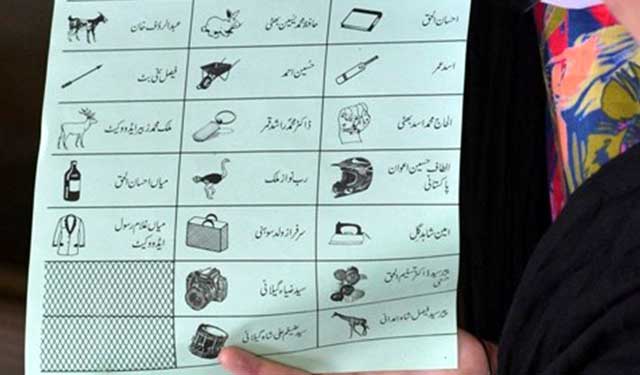 احسان الحق
حافظ محمد یٰسین بھٹی
عبدالرؤف خان
اسد عمر
حسین احمد
فیصل سخی بٹ
الحاج محمد اسد بھٹی
ڈاکٹر محمد راشد قمر
ملک محمد زبیر ایڈووکیٹ
الطاف حسین اعوان
پاکستانی
رب نواز ملک
میاں احسان الحق
امین شاہد گل
سرفراز ولد سوہنی
میاں غلام رسول
ایڈووکیٹ
پیر سید ڈاکٹر تسلیم الحق
سید ضیاء گیلانی
پیر سید فیصل شاہ ہمدانی
سید عظیم علی شاہ گیلانی